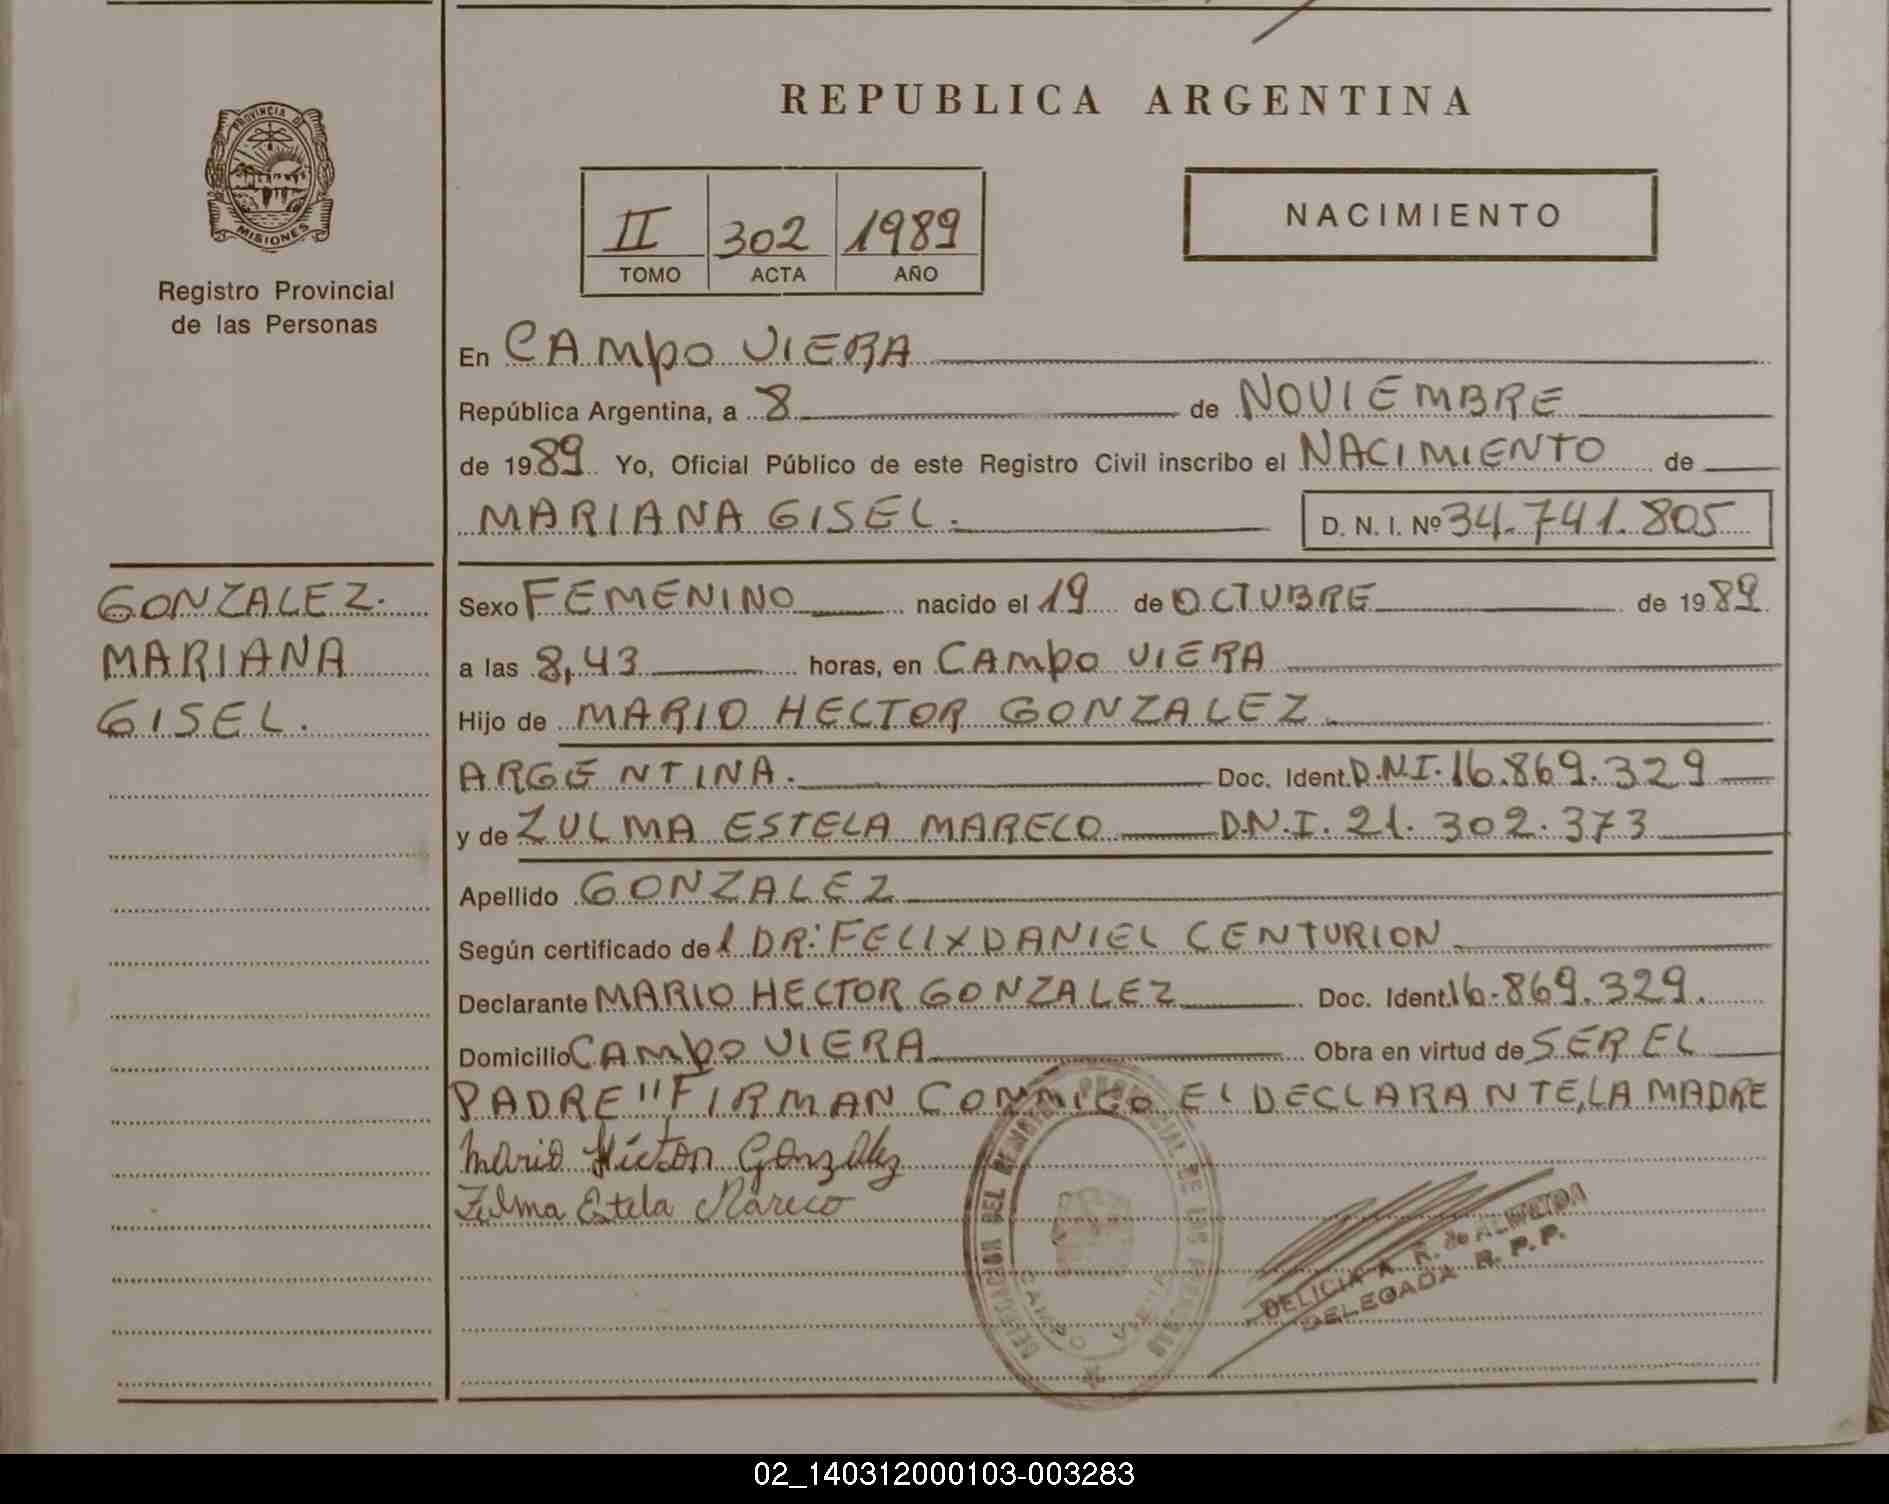 REPUBLICA ARGENTINA
PROVINCIA D
MISIONES
Registro Provincial
de las Personas
II 302 1989
TOMO ACTA AÑO
NACIMIENTO
En CAMPO VIERA
República Argentina, a 8 de NOVIEMBRE
de 1989 Yo, Oficial Público de este Registro Civil inscribo el NACIMIENTO de
MARIANA GISEL. D. N. I. Nº 34.741.805
GONZALEZ.
MARIANA
GISEL.
Sexo FEMENINO nacido el 19 de OCTUBRE de 1989
a las 8,43 horas, en CAMPO VIERA
Hijo de MARIO HECTOR GONZALEZ
ARGENTINA. Doc. Ident. D.N.I. 16.869.329
y de ZULMA ESTELA MARECO D.N.I. 21.302.373
Apellido GONZALEZ
Según certificado del DR: FELIX DANIEL CENTURION
Declarante MARIO HECTOR GONZALEZ Doc. Ident. 16.869.329.
Domicilio CAMPO VIERA Obra en virtud de SER EL
PADRE "FIRMAN CONMIGO EL DECLARANTE, LA MADRE
Mario Héctor González
Zulma Estela Mareco
DELEGACION DEL REGISTRO PROVINCIAL DE LAS PERSONAS
CAMPO VIERA
DELICIA R. de ALMEIDA
DELEGADA R. P. P.
02_140312000103-003283